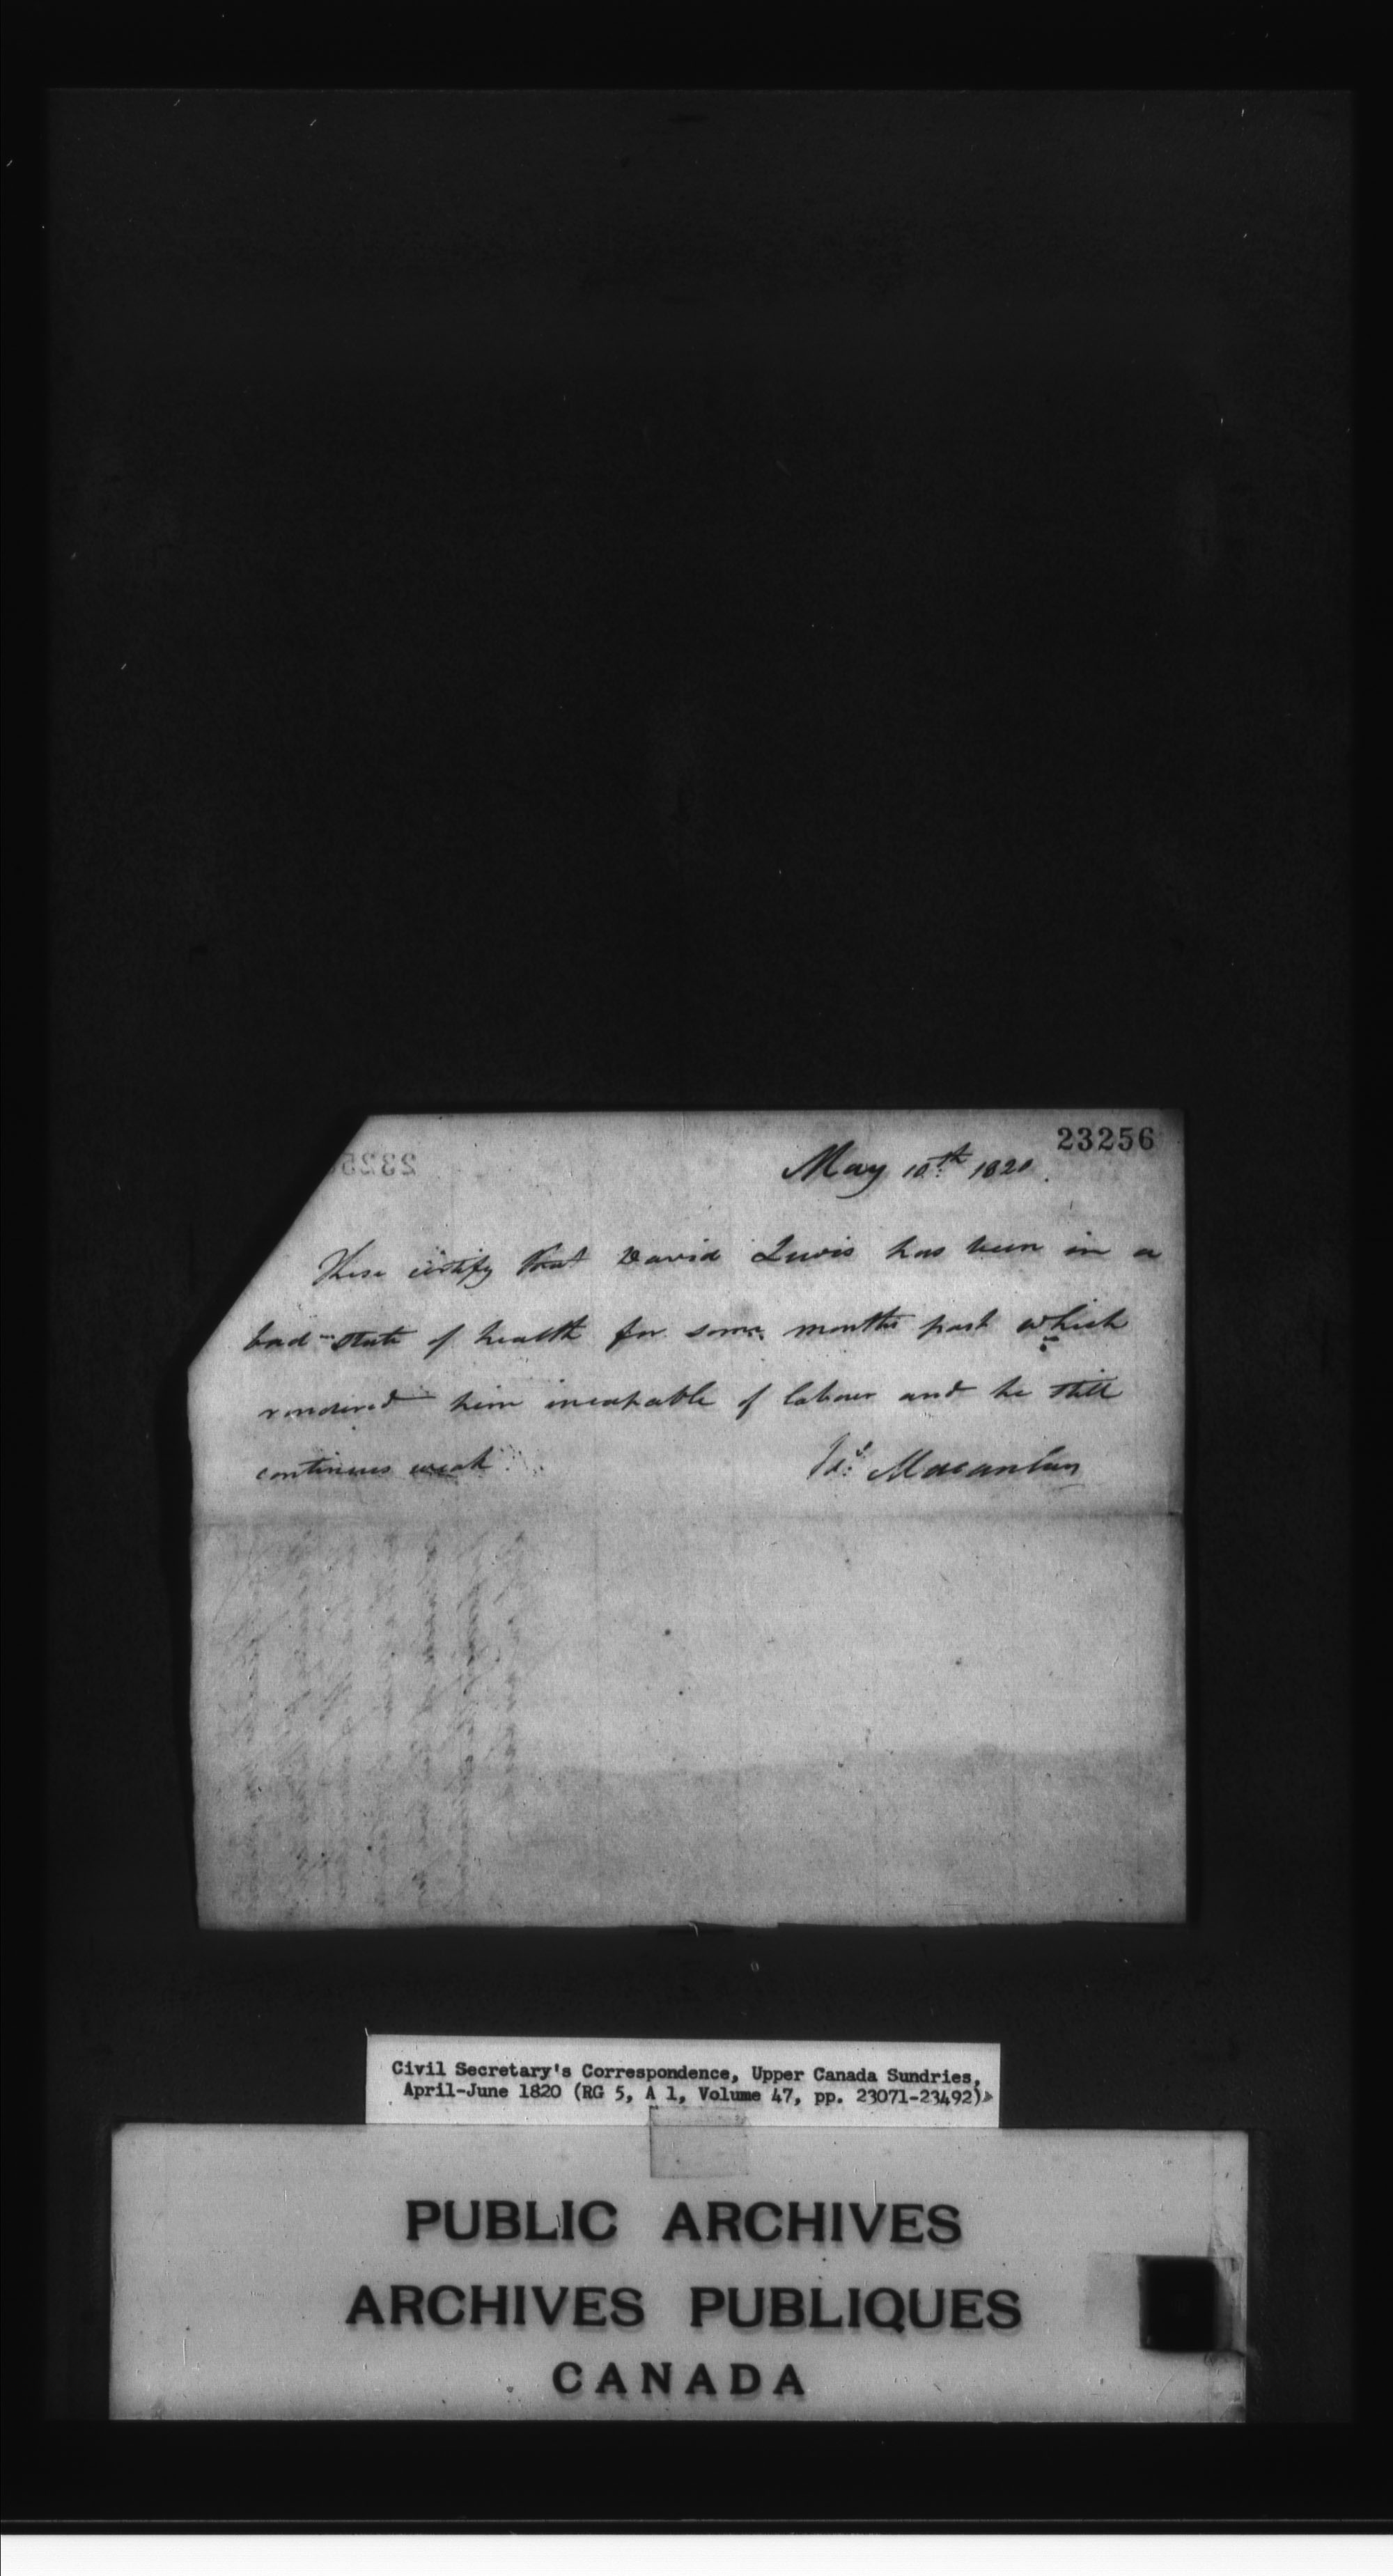 23256
May 10th 1820.
These certify that David Lewis has been in a
bad state of health for some months past which
rendered him incapable of labour and he still
continues weak.
Js. Macaulay
Civil Secretary's Correspondence, Upper Canada Sundries,
April-June 1820 (RG 5, A 1, Volume 47, pp. 23071-23492)
PUBLIC ARCHIVES
ARCHIVES PUBLIQUES
CANADA